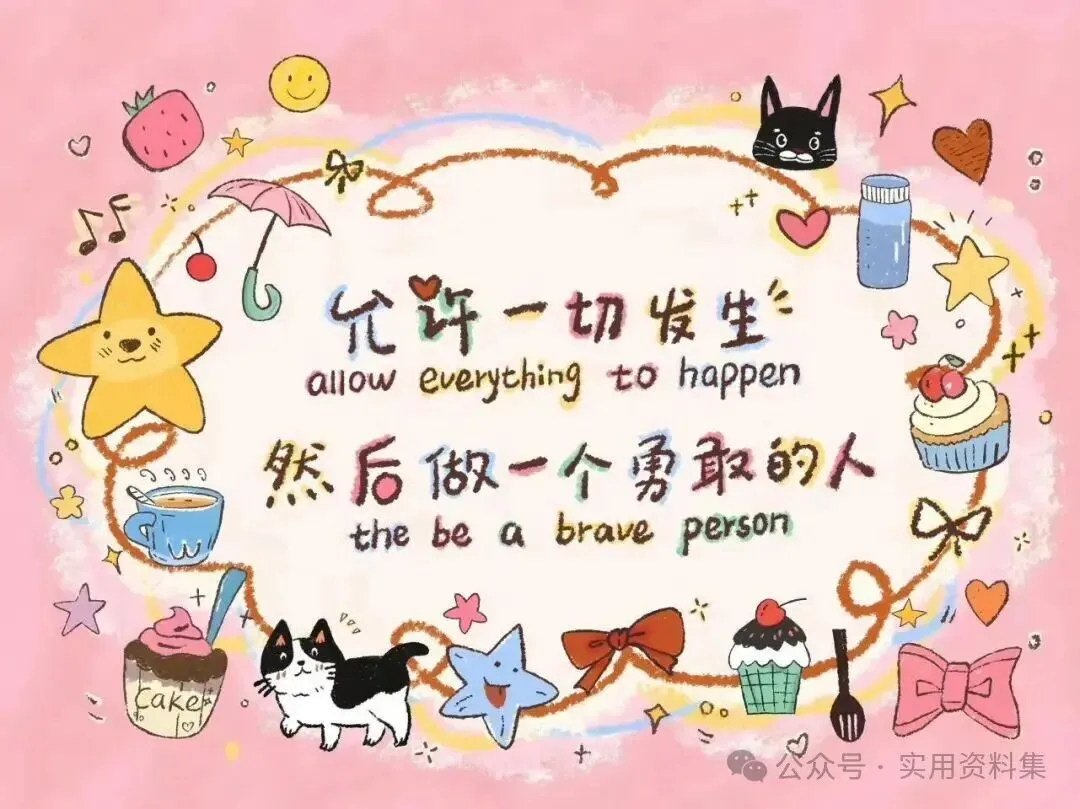 允许一切发生
allow everything to happen
然后做一个勇敢的人
the be a brave person
cake
公众号 · 实用资料集